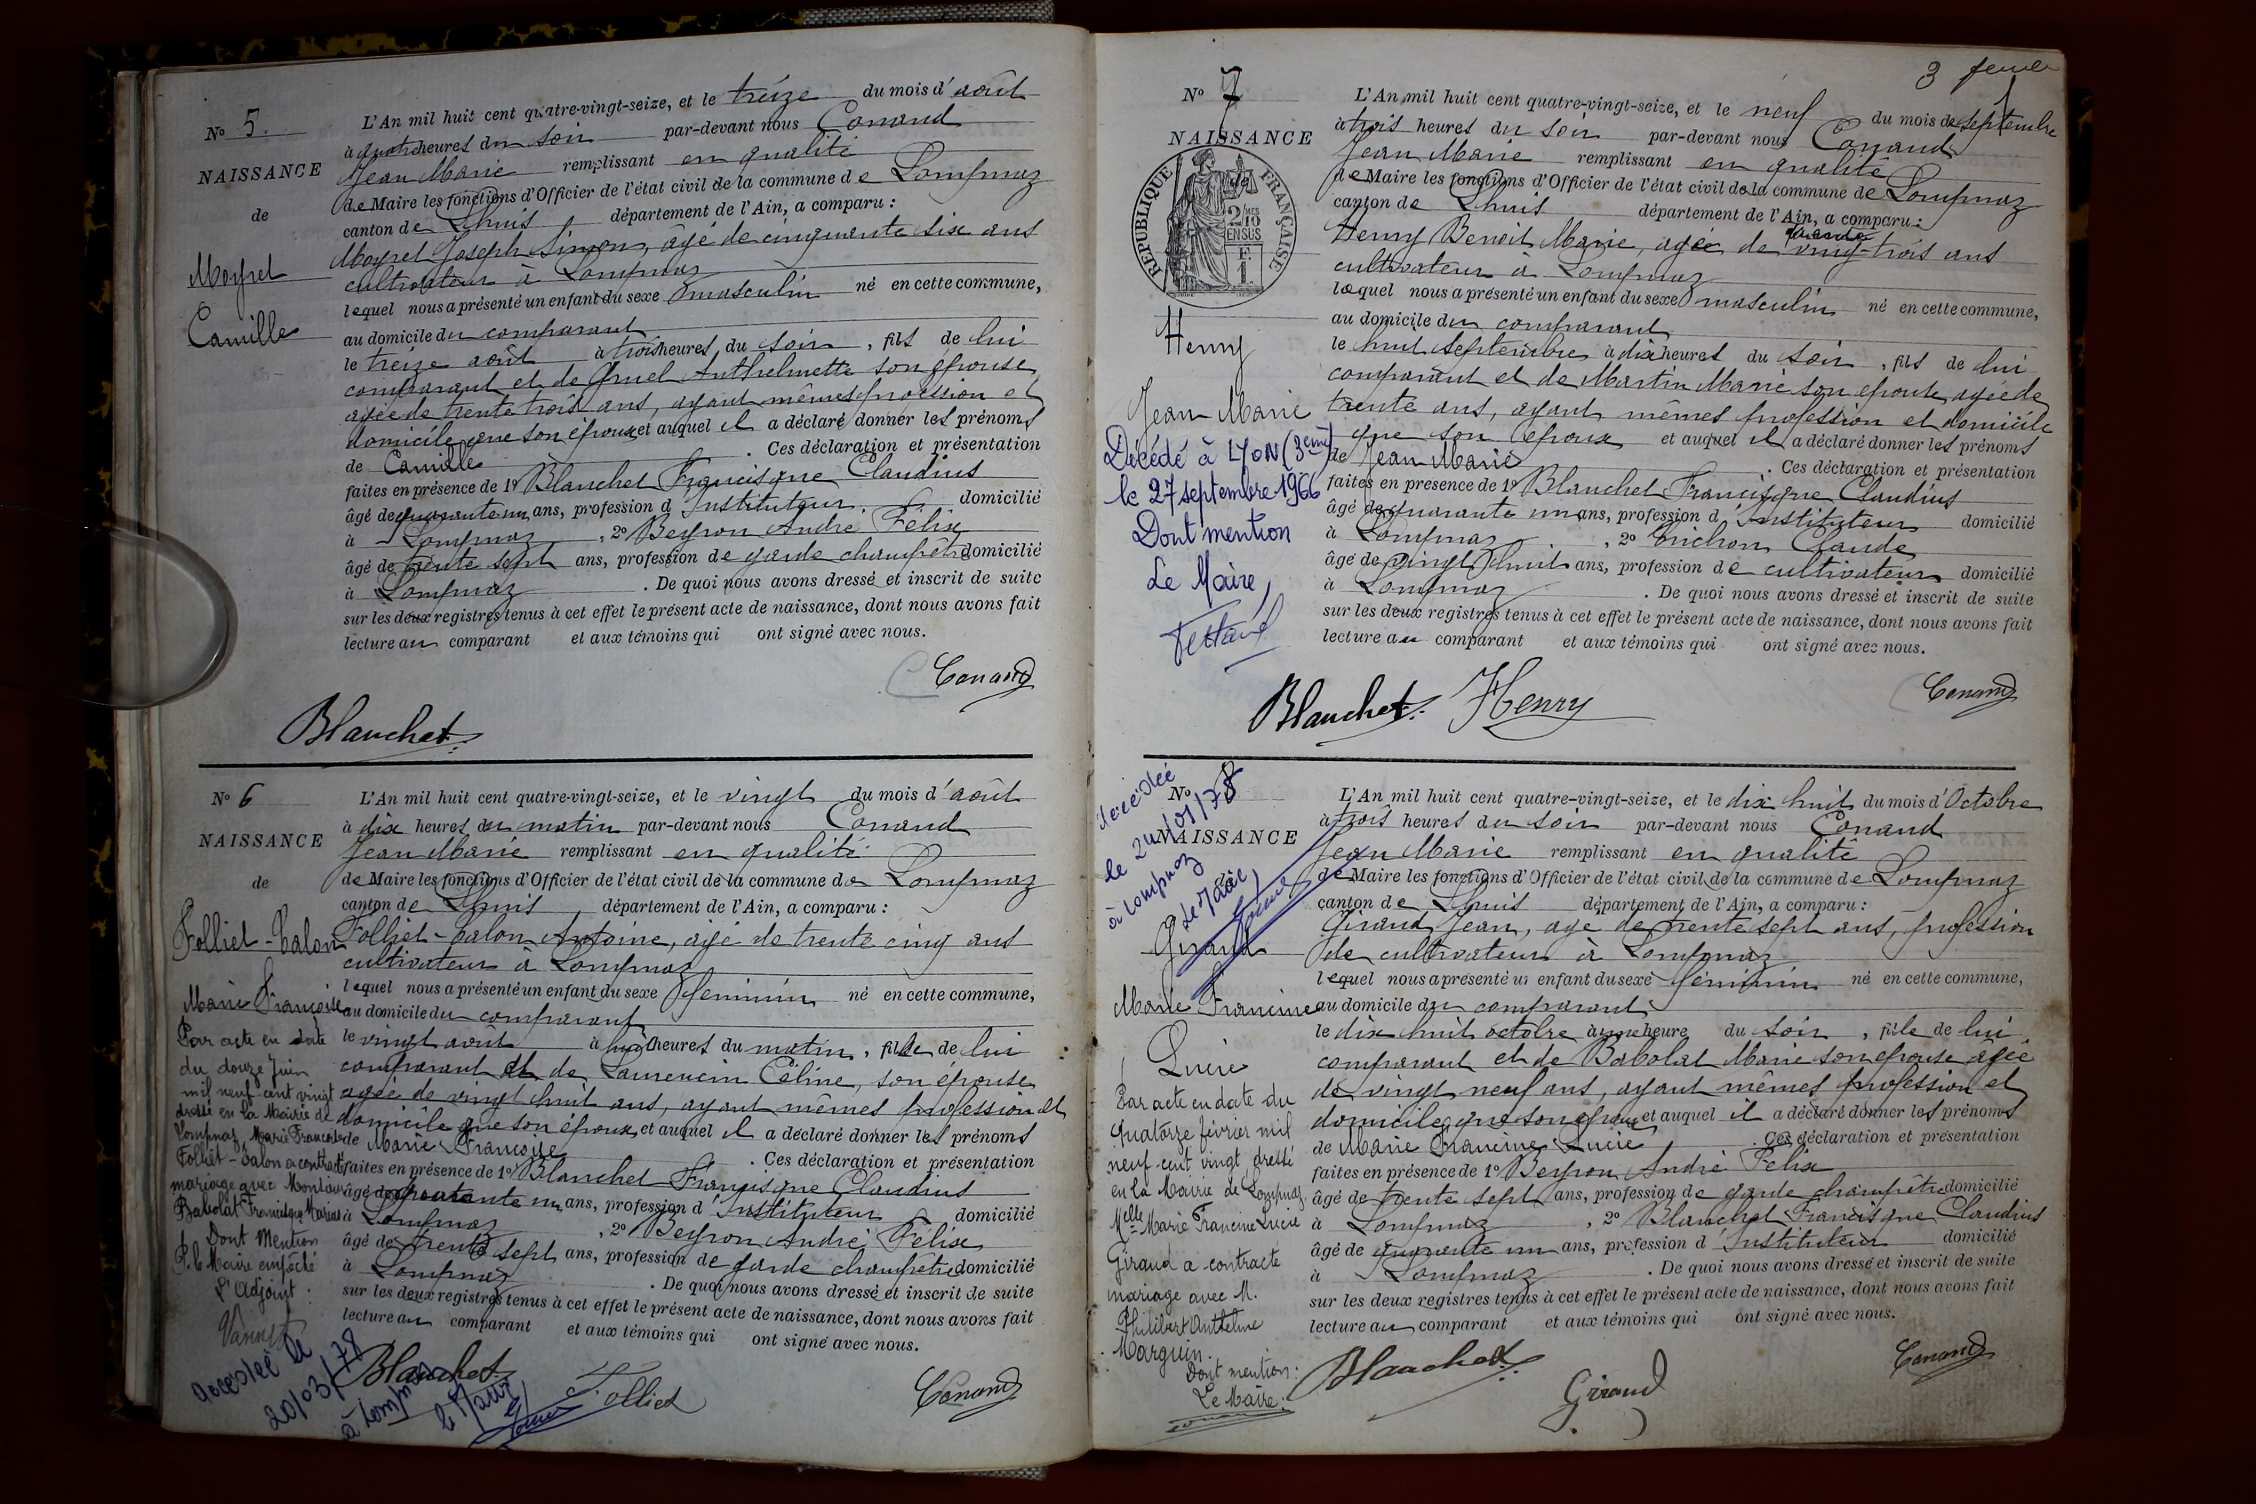 No 5.
NAISSANCE
de
Moyret
Camille
L'An mil huit cent quatre-vingt-seize, et le treize du mois d'août
à quatre heures du soir par-devant nous Conand
Jean Marie remplissant en qualité
de Maire les fonctions d'Officier de l'état civil de la commune de Lompnaz
canton de Lhuis département de l'Ain, a comparu :
Moyret Joseph Simon, âgé de cinquante six ans
cultivateur à Lompnaz
lequel nous a présenté un enfant du sexe masculin né en cette commune,
au domicile du comparant
le treize août à trois heures du soir, fils de lui
comparant et de Gruel Anthelmette son épouse
agée de trente trois ans, ayant mêmes profession et
domicile que son époux et auquel il a déclaré donner les prénoms
de Camille . Ces déclaration et présentation
faites en présence de 1º Blanchet Francisque Claudius
âgé de quarante un ans, profession d'Instituteur domicilié
à Lompnaz, 2º Beyron André Félix
âgé de trente sept ans, profession de garde champêtre domicilié
à Lompnaz . De quoi nous avons dressé et inscrit de suite
sur les deux registres tenus à cet effet le présent acte de naissance, dont nous avons fait
lecture au comparant et aux témoins qui ont signé avec nous.
Conand
Blanchet
No 6
NAISSANCE
de
Folliet-Calon
Marie Françoise
Par acte en date
du douze Juin
mil neuf cent vingt
dressé en la Mairie de
Lompnaz, Marie Françoise
Folliet-Calon a contracté
mariage avec Monsieur
Babolat Francisque Marius
Dont Mention
P. le Maire empêché
L'Adjoint :
décédée le
20/03/78
à Lompnaz
le Maire,
L'An mil huit cent quatre-vingt-seize, et le vingt du mois d'août
à dix heures du matin par-devant nous Conand
Jean Marie remplissant en qualité
de Maire les fonctions d'Officier de l'état civil de la commune de Lompnaz
canton de Lhuis département de l'Ain, a comparu :
Folliet-Calon Antoine, agé de trente cinq ans
cultivateur à Lompnaz
lequel nous a présenté un enfant du sexe féminin né en cette commune,
au domicile du comparant
le vingt août à heures du matin, fille de lui
comparant et de Laurencin Céline, son épouse
agée de vingt huit ans, ayant mêmes profession et
domicile que son époux, et auquel il a déclaré donner les prénoms
de Marie Françoise . Ces déclaration et présentation
faites en présence de 1º Blanchet Francisque Claudius
âgé de quarante un ans, profession d'Instituteur domicilié
à Lompnaz, 2º Beyron André Félix
âgé de trente sept ans, profession de garde champêtre domicilié
à Lompnaz . De quoi nous avons dressé et inscrit de suite
sur les deux registres tenus à cet effet le présent acte de naissance, dont nous avons fait
lecture au comparant et aux témoins qui ont signé avec nous.
Blanchet Folliet Conand
3
No 7
NAISSANCE
RÉPUBLIQUE FRANÇAISE
2/10
EN SUS
F.
1.
Henry
Jean Marie
Décédé à LYON (3eme)
le 27 septembre 1966
Dont mention
Le Maire,
L'An mil huit cent quatre-vingt-seize, et le neuf du mois de septembre
à trois heures du soir par-devant nous Conand
Jean Marie remplissant en qualité
de Maire les fonctions d'Officier de l'état civil de la commune de Lompnaz
canton de Lhuis département de l'Ain, a comparu :
Henry Benoit Marie, agé de vingt-trois ans
cultivateur à Lompnaz
lequel nous a présenté un enfant du sexe masculin né en cette commune,
au domicile du comparant
le huit septembre à dix heures du soir, fils de lui
comparant et de Martin Marie son épouse, agée de
trente ans, ayant mêmes profession et domicile
que son époux et auquel il a déclaré donner les prénoms
de Jean Marie . Ces déclaration et présentation
faites en présence de 1º Blanchet Francisque Claudius
âgé de quarante un ans, profession d'Instituteur domicilié
à Lompnaz, 2º Trichon Claude
âgé de vingt huit ans, profession de cultivateur domicilié
à Lompnaz . De quoi nous avons dressé et inscrit de suite
sur les deux registres tenus à cet effet le présent acte de naissance, dont nous avons fait
lecture au comparant et aux témoins qui ont signé avec nous.
Blanchet Henry Conand
No 8
NAISSANCE
décédée
le 24/01/78
à Lompnaz
Le Maire,
Giraud
Marie Francine
Lucie
Par acte en date du
quatorze février mil
neuf cent vingt dressé
en la Mairie de Lompnaz
Melle Marie Francine Lucie
Giraud a contracté
mariage avec M.
Philibert Anthelme
Marguin.
Dont mention :
Le Maire :
L'An mil huit cent quatre-vingt-seize, et le dix huit du mois d'Octobre
à trois heures du soir par-devant nous Conand
Jean Marie remplissant en qualité
de Maire les fonctions d'Officier de l'état civil de la commune de Lompnaz
canton de Lhuis département de l'Ain, a comparu :
Giraud Jean, agé de trente sept ans, profession
de cultivateur à Lompnaz
lequel nous a présenté un enfant du sexe féminin né en cette commune,
au domicile du comparant
le dix huit octobre à une heure du soir, fille de lui
comparant et de Babolat Marie son épouse agée
de vingt neuf ans, ayant mêmes profession et
domicile que son époux et auquel il a déclaré donner les prénoms
de Marie Francine Lucie . Ces déclaration et présentation
faites en présence de 1º Beyron André Félix
âgé de trente sept ans, profession de garde champêtre domicilié
à Lompnaz, 2º Blanchet Francisque Claudius
âgé de quarante un ans, profession d'Instituteur domicilié
à Lompnaz . De quoi nous avons dressé et inscrit de suite
sur les deux registres tenus à cet effet le présent acte de naissance, dont nous avons fait
lecture au comparant et aux témoins qui ont signé avec nous.
Blanchet Giraud Conand